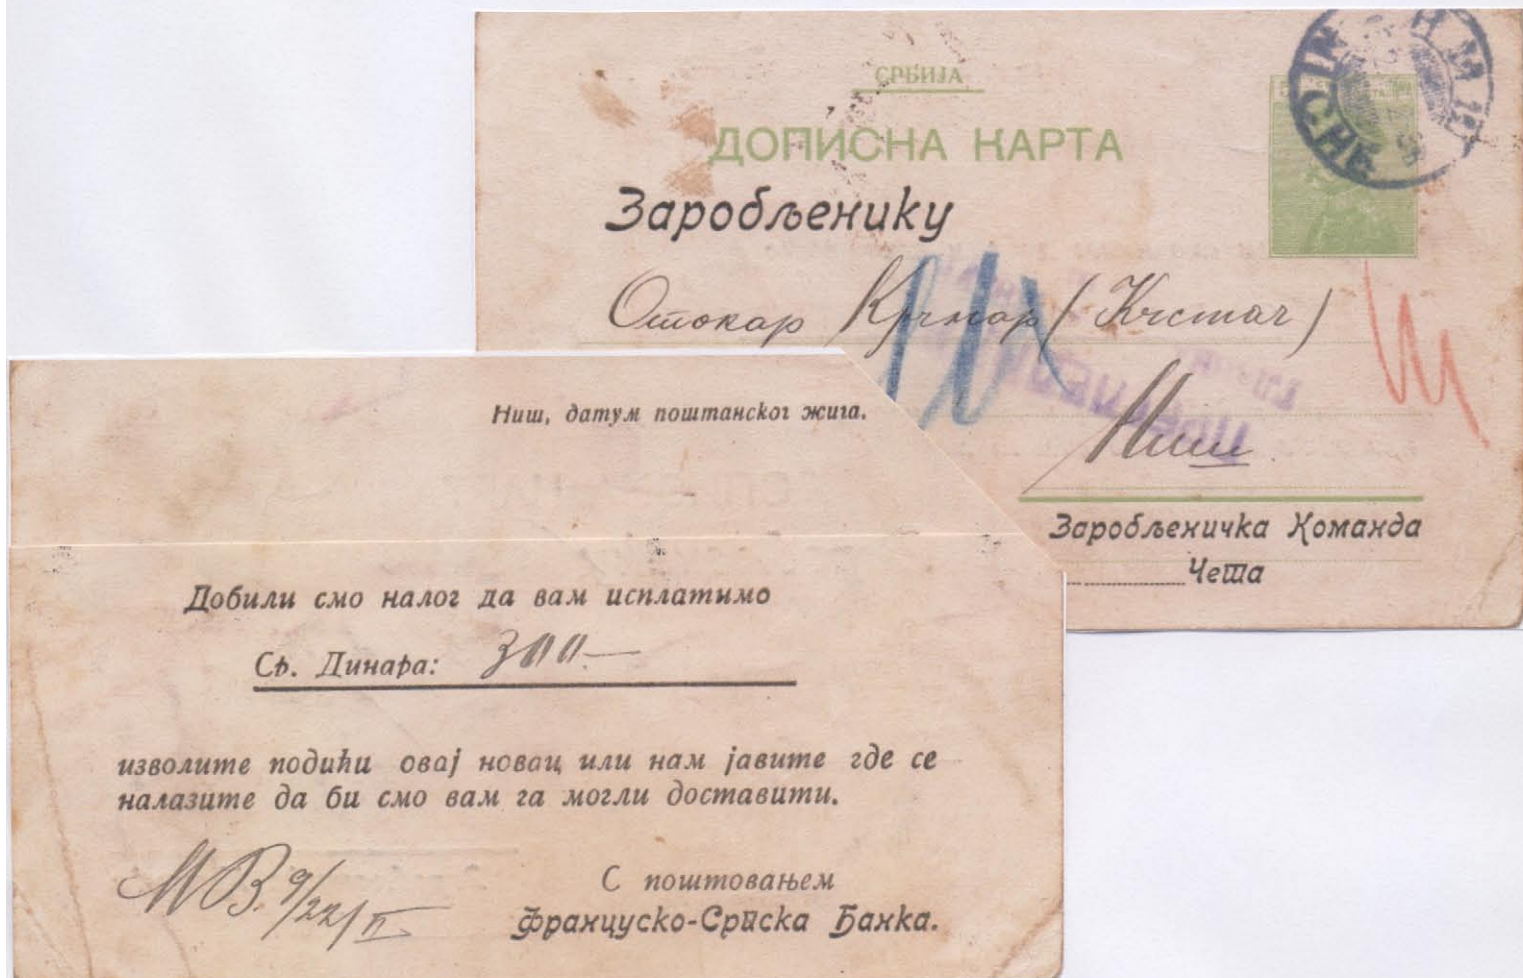 СРБИЈА
ДОПИСНА КАРТА
Заробљенику
Отокар Крчмар
Ниш
Заробљеничка Команда
Чета
Ниш, датум поштанског жига.
Добили смо налог да вам исплатимо
Ср. Динара: 300.—
изволите подићи овај новац или нам јавите где се
налазите да би смо вам га могли доставити.
С поштовањем
Француско-Српска Банка.